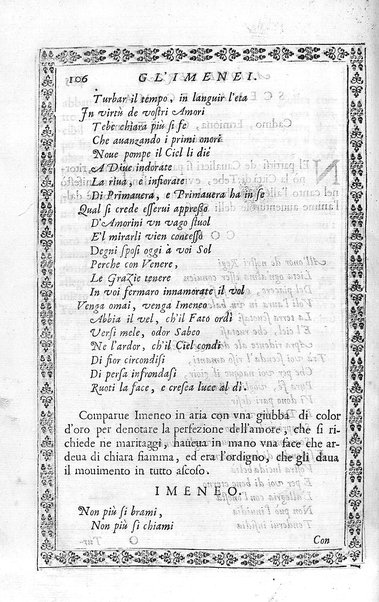 106 GL'IMENEI.
Turbar il tempo, in languir l'eta
In virtù de vostri Amori
Tebe chiara più si fe
Che auanzando i primi onori
Noue pompe il Ciel li diè
A Diue indorate
La riua, e infiorate
Di Primauera, e Primauera ha in se
Qual si crede esserui appresso
D'Amorini vn vago stuol
E'l mirarli vien concesso
Degni sposi oggi à voi Sol
Perche con Venere,
Le Grazie tenere
In voi fermaro innamorate il vol
Venga omai, venga Imeneo
Abbia il vel, ch'il Fato ordì
Versi mele, odor Sabeo
Ne l'ardor, ch'il Ciel condì
Di fior circondisi
Di persa infrondasi
Ruoti la face, e cresca luce al dì.
Comparue Imeneo in aria con vna giubba di color
d'oro per denotare la perfezione dell'amore, che si ri-
chiede ne maritaggi, haueua in mano vna face che ar-
deua di chiara fiamma, ed era l'ordigno, che gli daua
il mouimento in tutto ascoso.
IMENEO.
Non più si brami,
Non più si chiami
Con